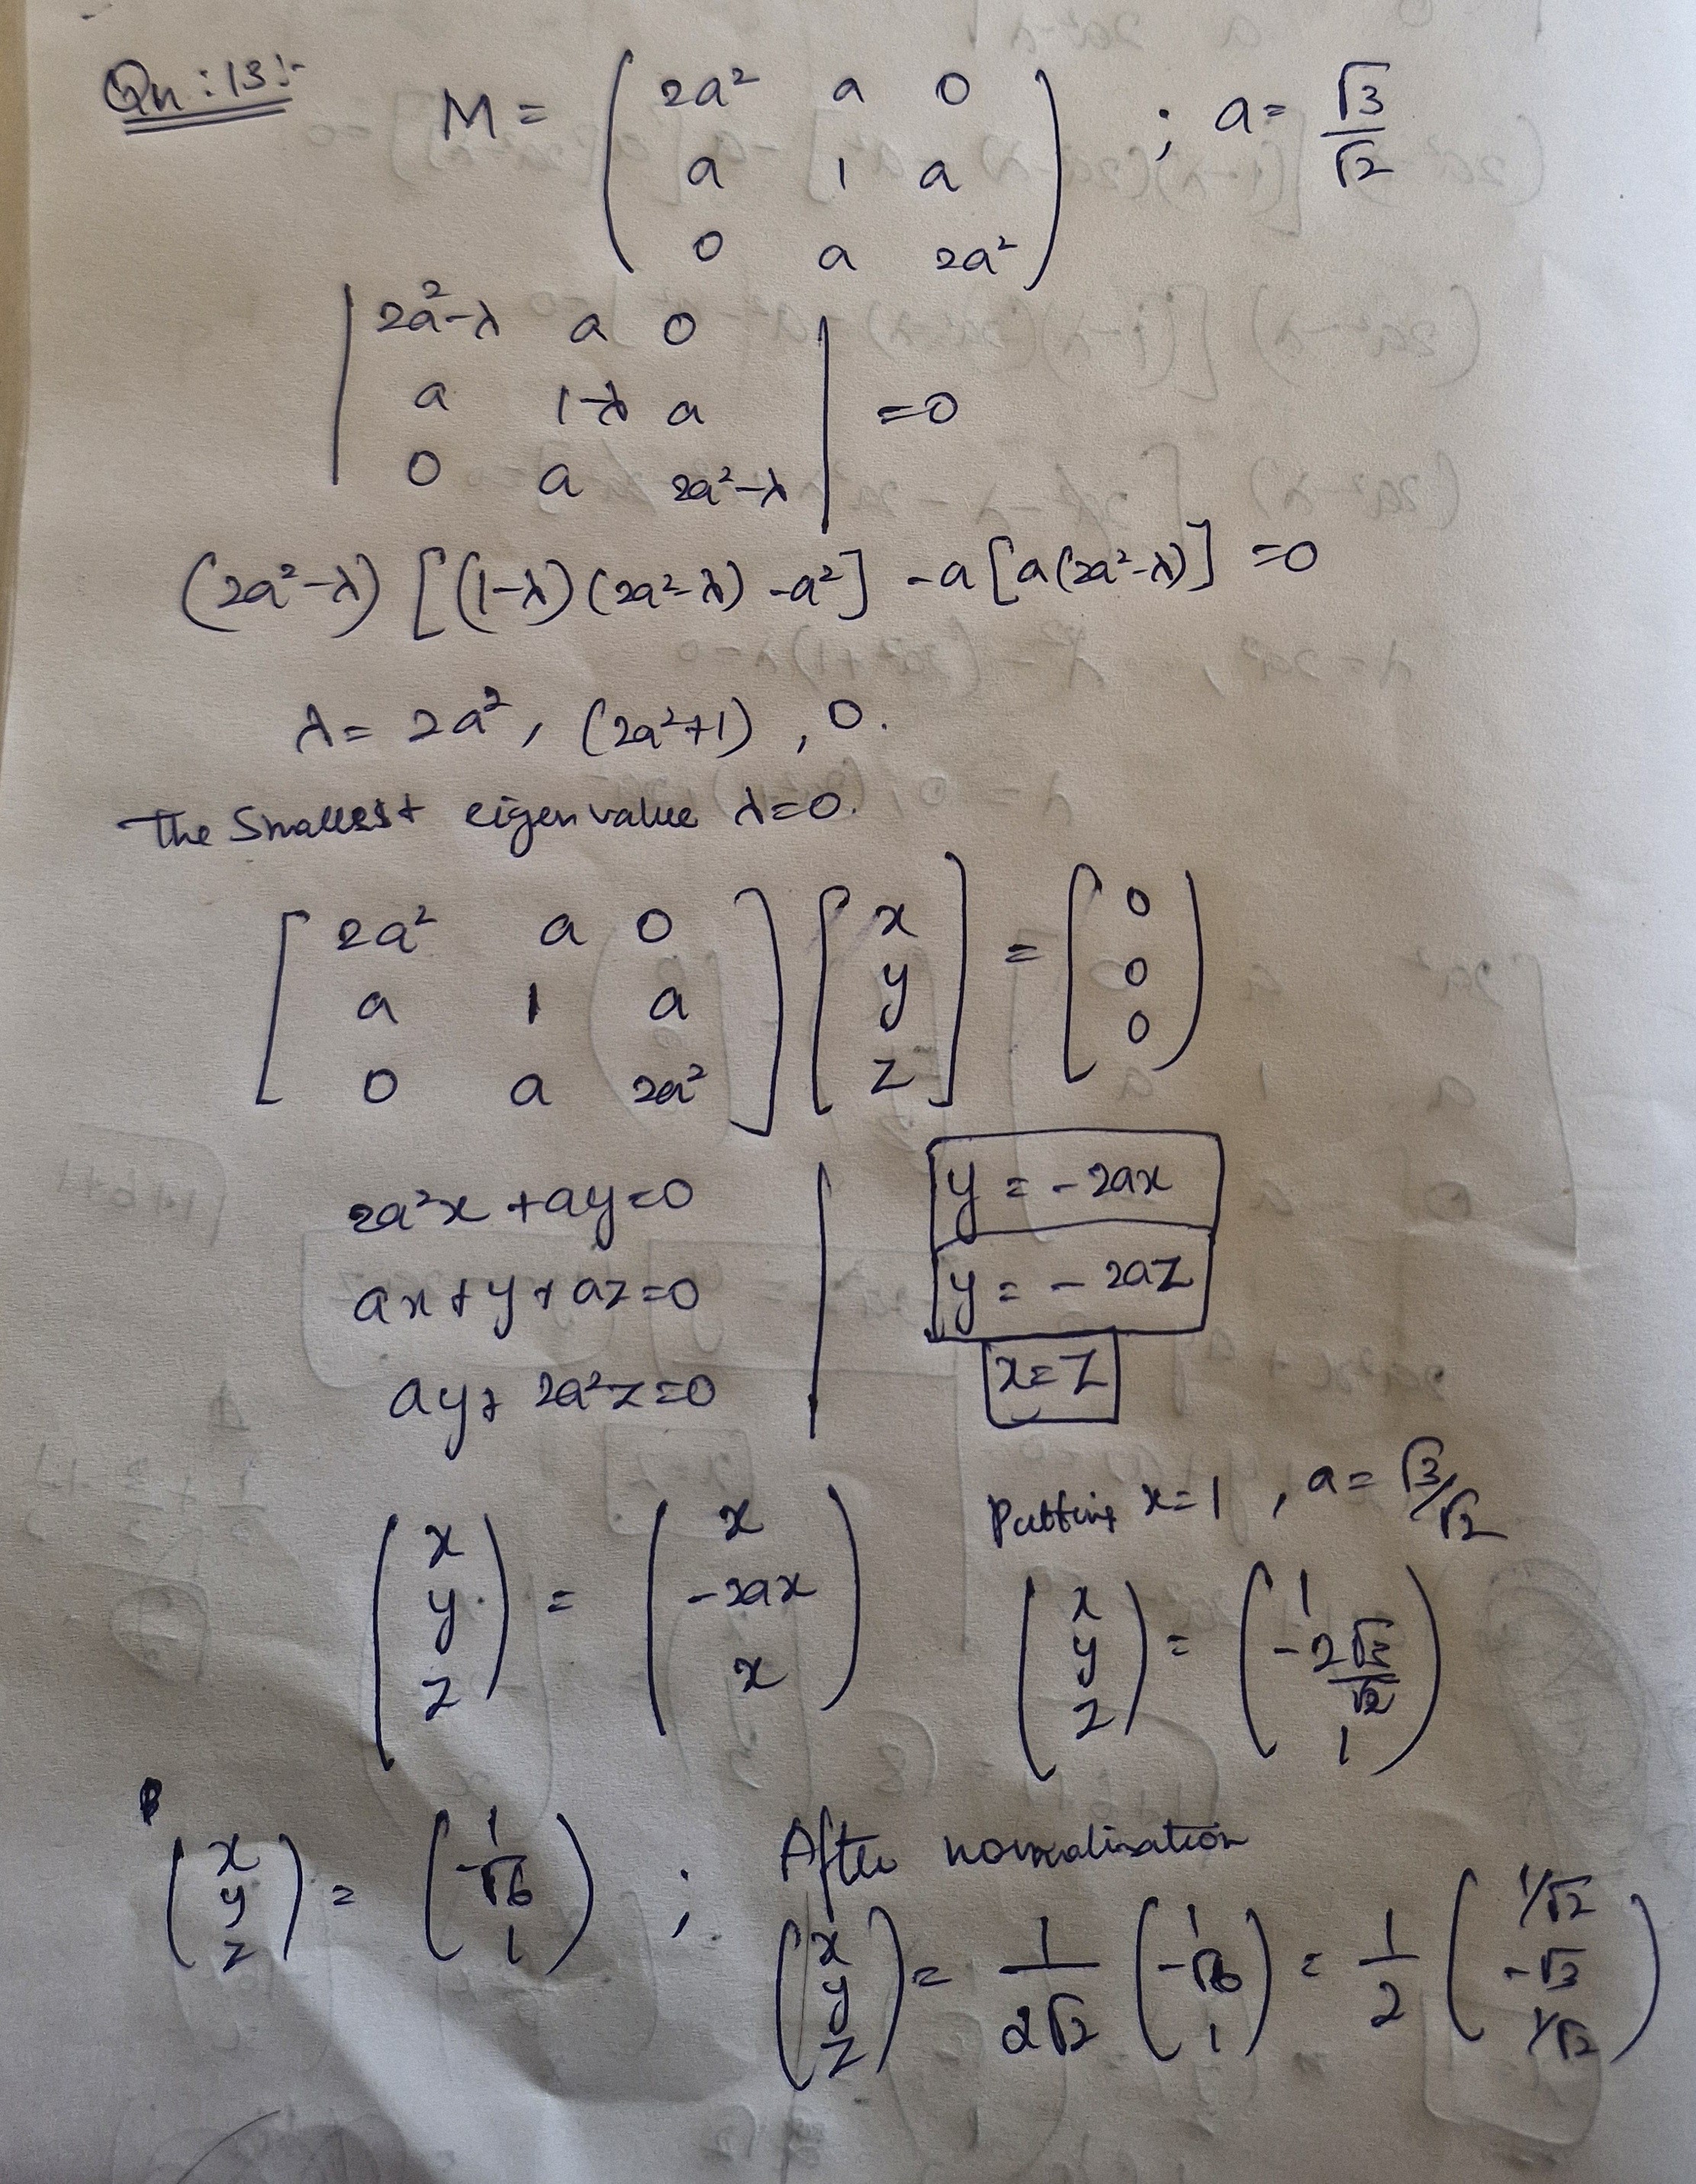 Qn:13:-
M = ( 2a² a 0 ; a = √3/√2
a 1 a
0 a 2a² )
| 2a²-λ a 0
a 1-λ a | =0
0 a 2a²-λ
(2a²-λ) [(1-λ)(2a²-λ) -a²] -a[a(2a²-λ)] =0
λ= 2a², (2a²+1), 0.
The Smallest eigen value λ=0.
[ 2a² a 0 ] [ x ] = ( 0 )
a 1 a y 0
0 a 2a² z 0
2a²x +ay=0
ax+y+az=0
ay+ 2a²z=0
y = -2ax
y = -2az
x=z
( x y z ) = ( x -2ax x )
Putting x=1, a= √3/√2
( x y z ) = ( 1 -2√3/√2 1 )
( x y z ) = ( 1 -√6 1 ) ;
After normalisation
( x y z ) = 1/2√2 ( 1 -√6 1 ) = 1/2 ( 1/√2 -√3 1/√2 )